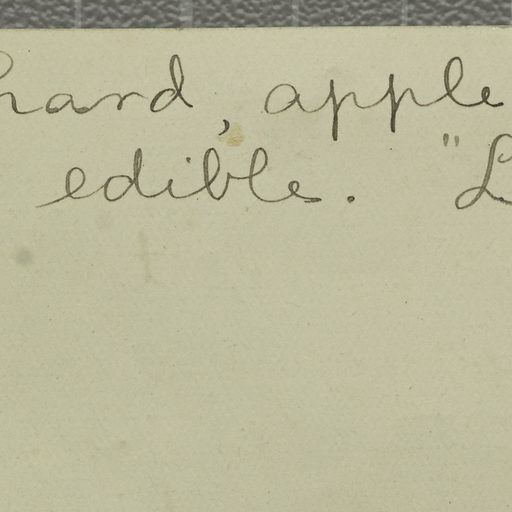 hard, apple
edible. "L